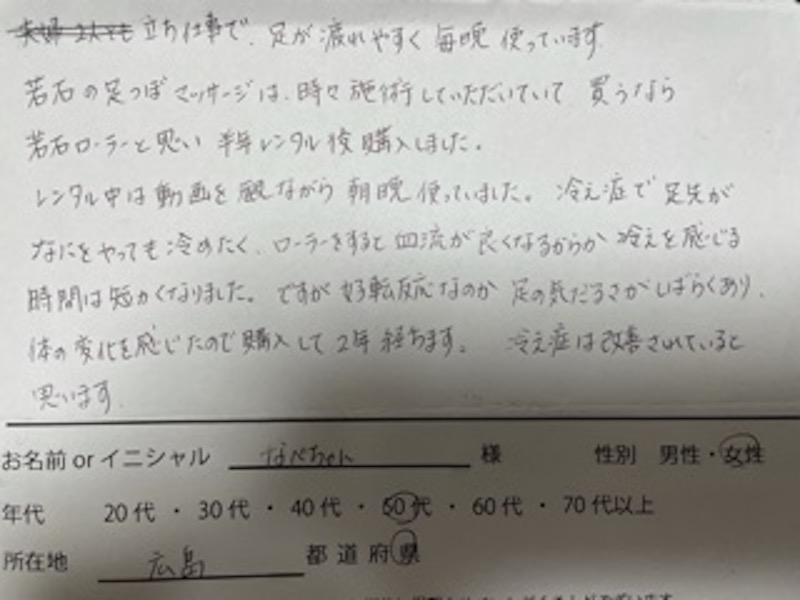 夫婦2人とも 立ち仕事で、足が疲れやすく 毎晩 使っています
若石の足つぼマッサージは、時々施術していただいていて 買うなら
若石ローラーと思い 半年レンタル後 購入しました。
レンタル中は動画を観ながら 朝晩 使っていました。 冷え症で 足先が
なにをやっても冷めたく、ローラーをすると血流が良くなるからか 冷えを感じる
時間は短かくなりました。ですが好転反応なのか 足の気だるさがしばらくあり、
体の変化を感じたので購入して2年経ちます。 冷え症は改善されていると
思います。
お名前 or イニシャル なべちゃん 様 性別 男性・女性
年代 20代・30代・40代・50代・60代・70代以上
所在地 広島 都道府県